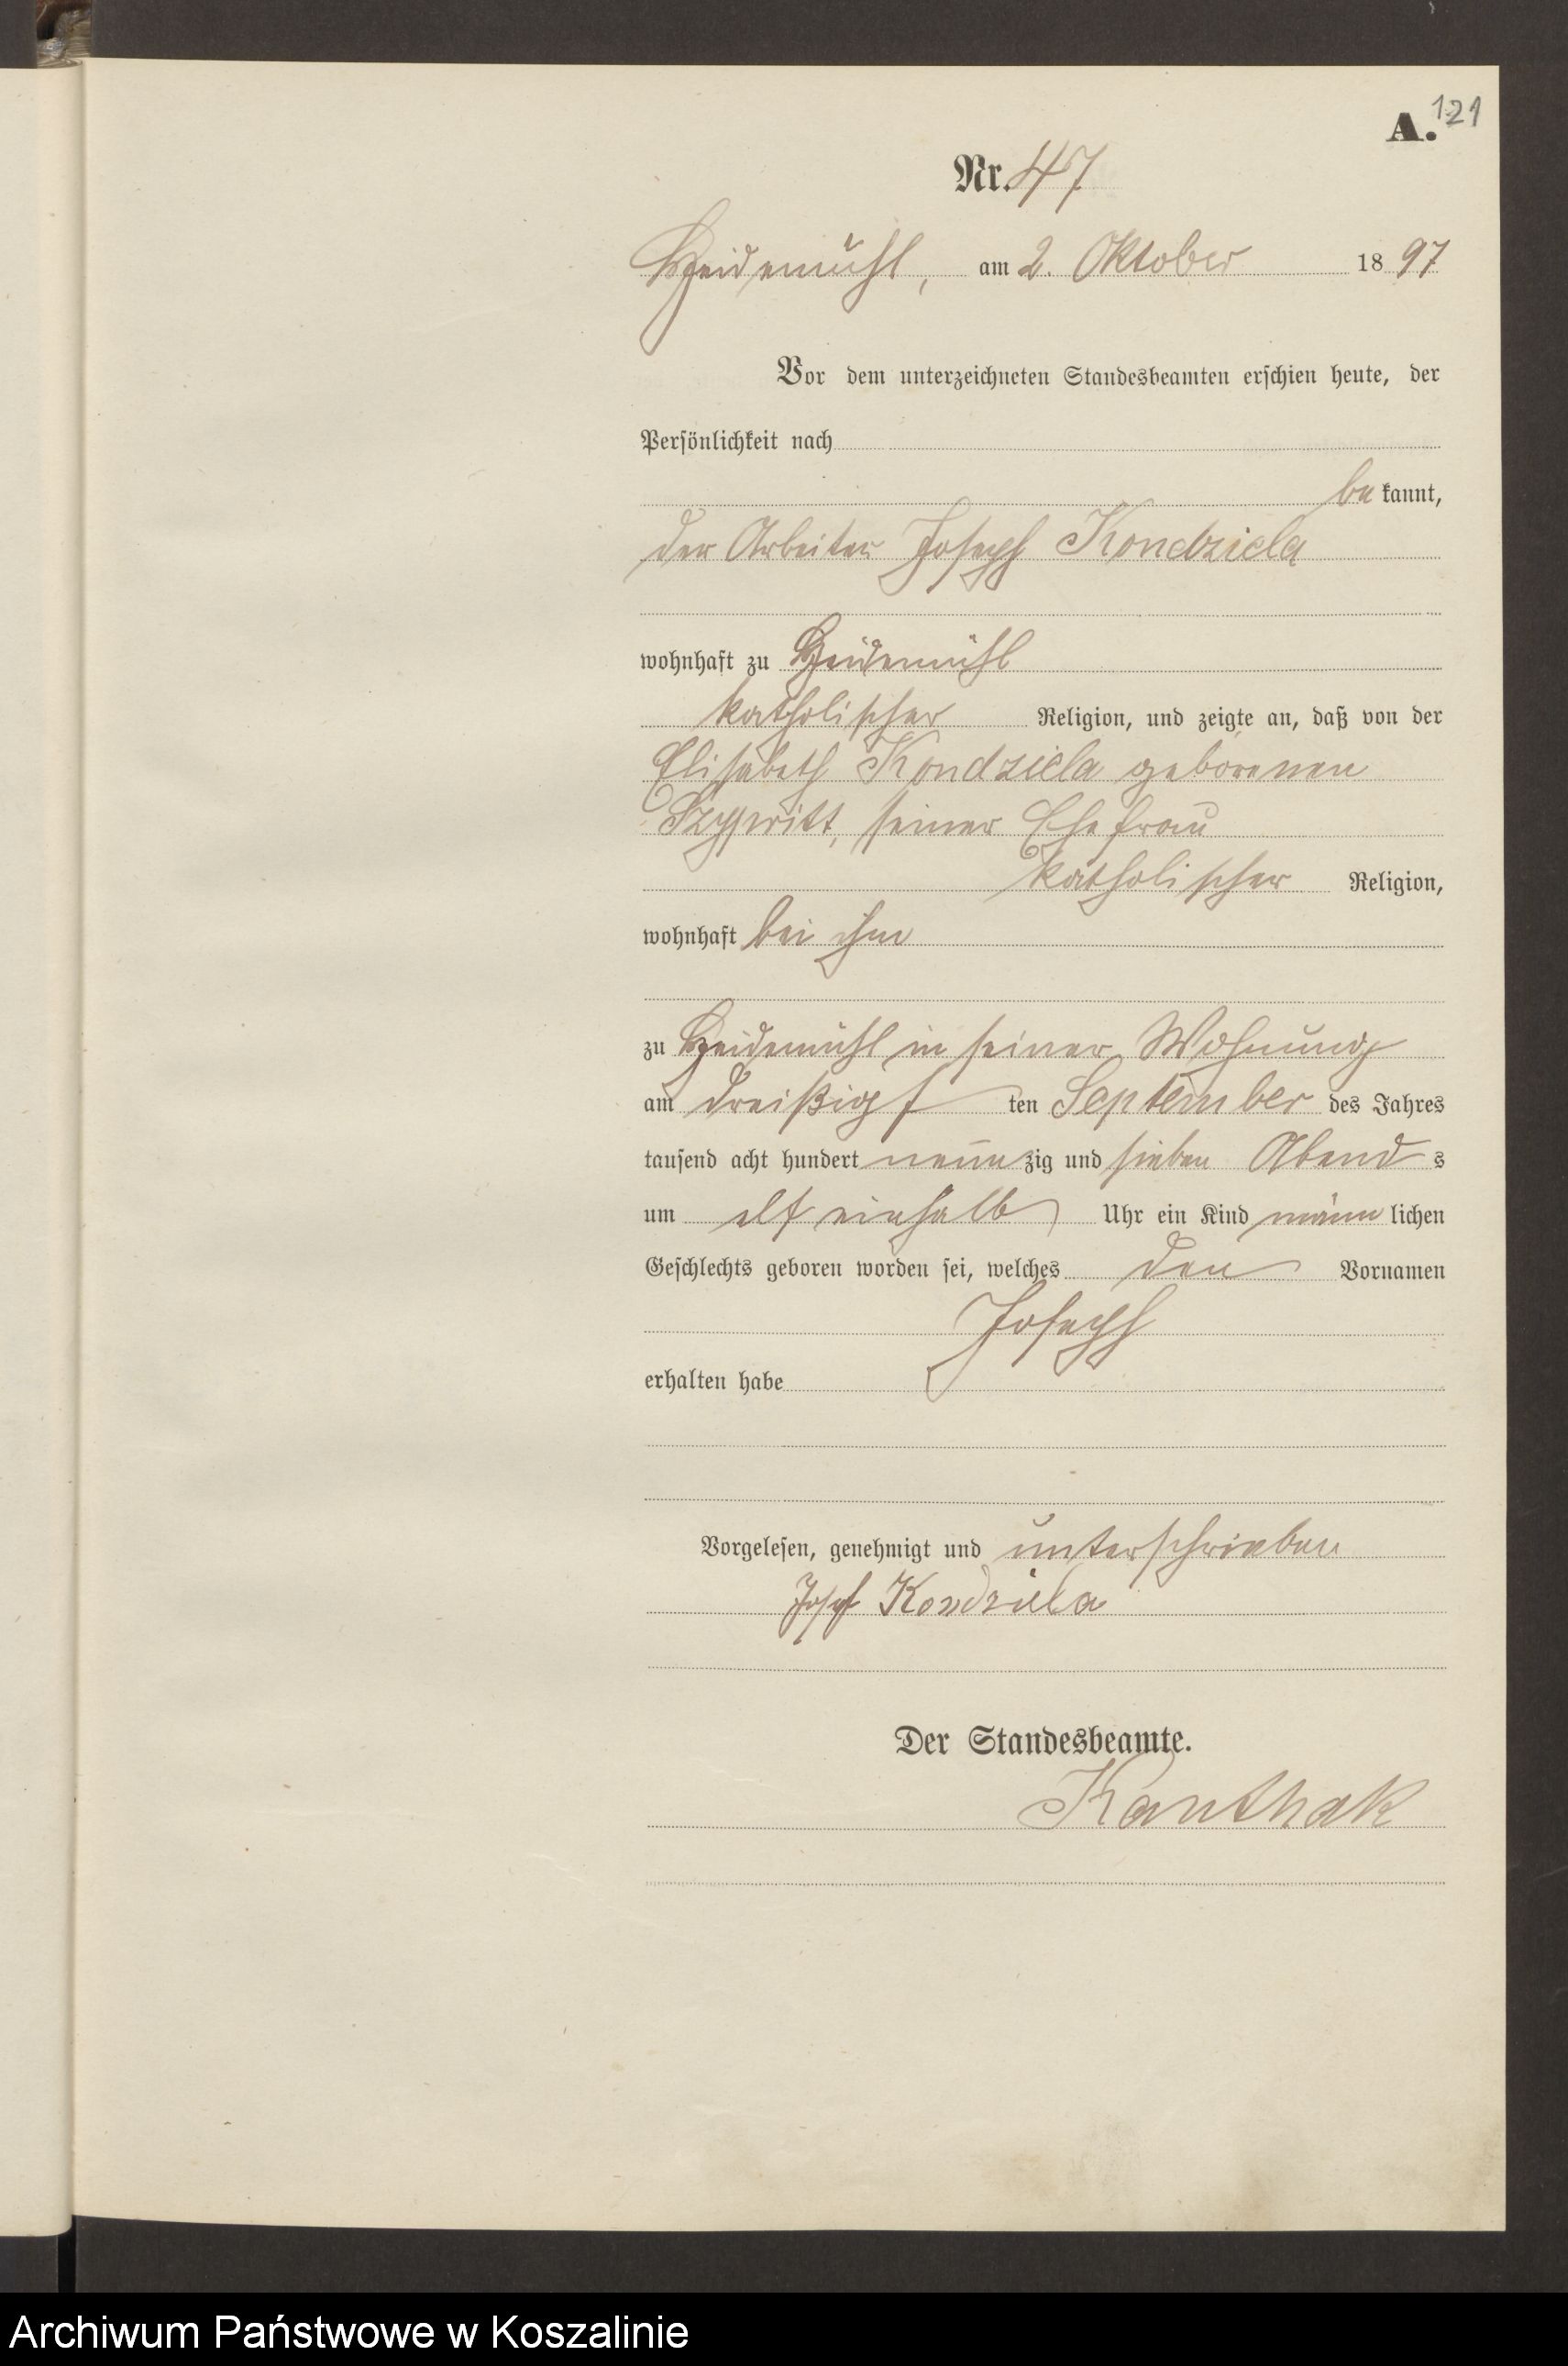 A. 121
Nr. 47
Heidemühl, am 2. Oktober 1897
Vor dem unterzeichneten Standesbeamten erschien heute, der
Persönlichkeit nach
be kannt,
der Arbeiter Joseph Kondziela
wohnhaft zu Heidemühl
katholischer Religion, und zeigte an, daß von der
Elisabeth Kondziela geborenen
seiner Ehefrau
katholischer Religion,
wohnhaft bei ihm
zu Heidemühl in seiner Wohnung
am dreißigs ten September des Jahres
tausend acht hundert neunzig und sieben Abends
um elf einhalb Uhr ein Kind männlichen
Geschlechts geboren worden sei, welches den Vornamen
Joseph
erhalten habe
Vorgelesen, genehmigt und unterschrieben
Josef Kondziela
Der Standesbeamte.
Kanthak
Archiwum Państwowe w Koszalinie